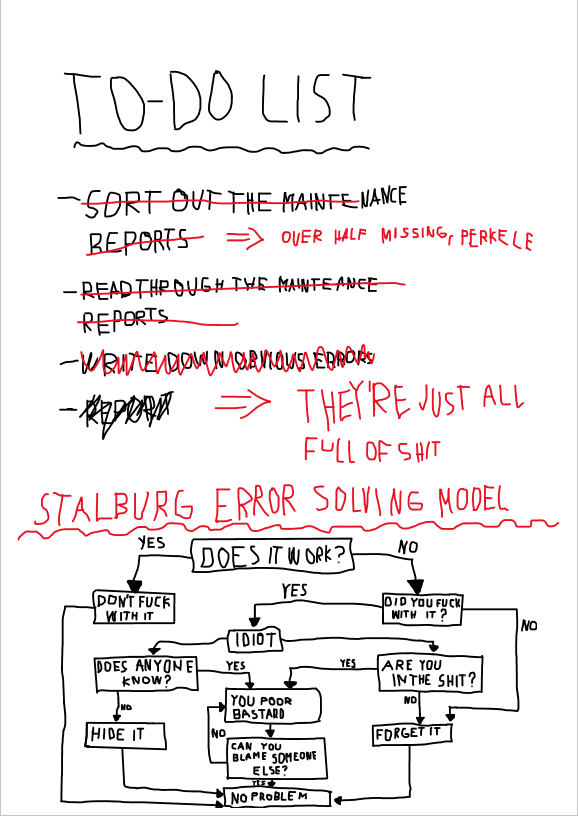 TO-DO LIST
- SORT OUT THE MAINTENANCE
REPORTS => OVER HALF MISSING, PERKELE
- READ THROUGH THE MAINTEANCE
REPORTS
- WRITE DOWN OBVIOUS ERRORS
- REPORT => THEY'RE JUST ALL
FULL OF SHIT
STALBURG ERROR SOLVING MODEL
YES
DOES IT WORK?
NO
DON'T FUCK
WITH IT
YES
DID YOU FUCK
WITH IT?
NO
IDIOT
DOES ANYONE
KNOW?
YES
YES
ARE YOU
IN THE SHIT?
NO
YOU POOR
BASTARD
NO
HIDE IT
NO
CAN YOU
BLAME SOMEONE
ELSE?
FORGET IT
YES
NO PROBLEM